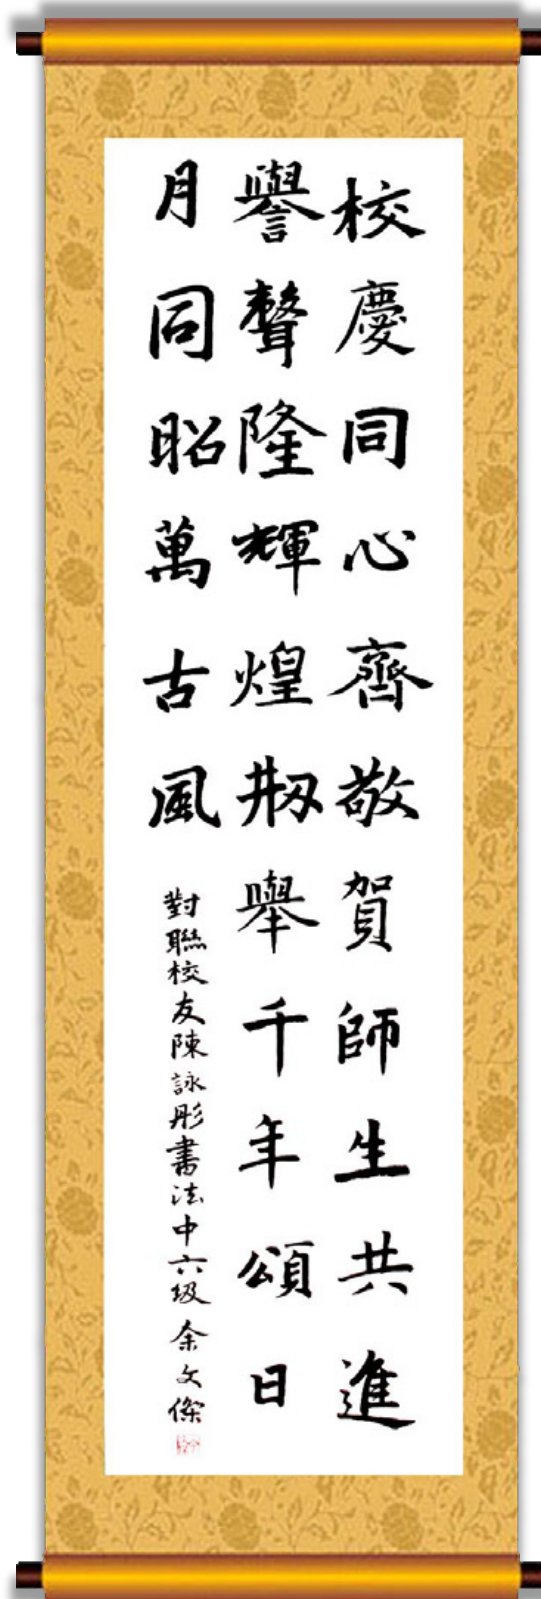 校慶同心齊敬賀師生共進
譽聲隆輝煌剏舉千年頌日
月同昭萬古風
對聯校友陳詠彤書法中六級余文傑